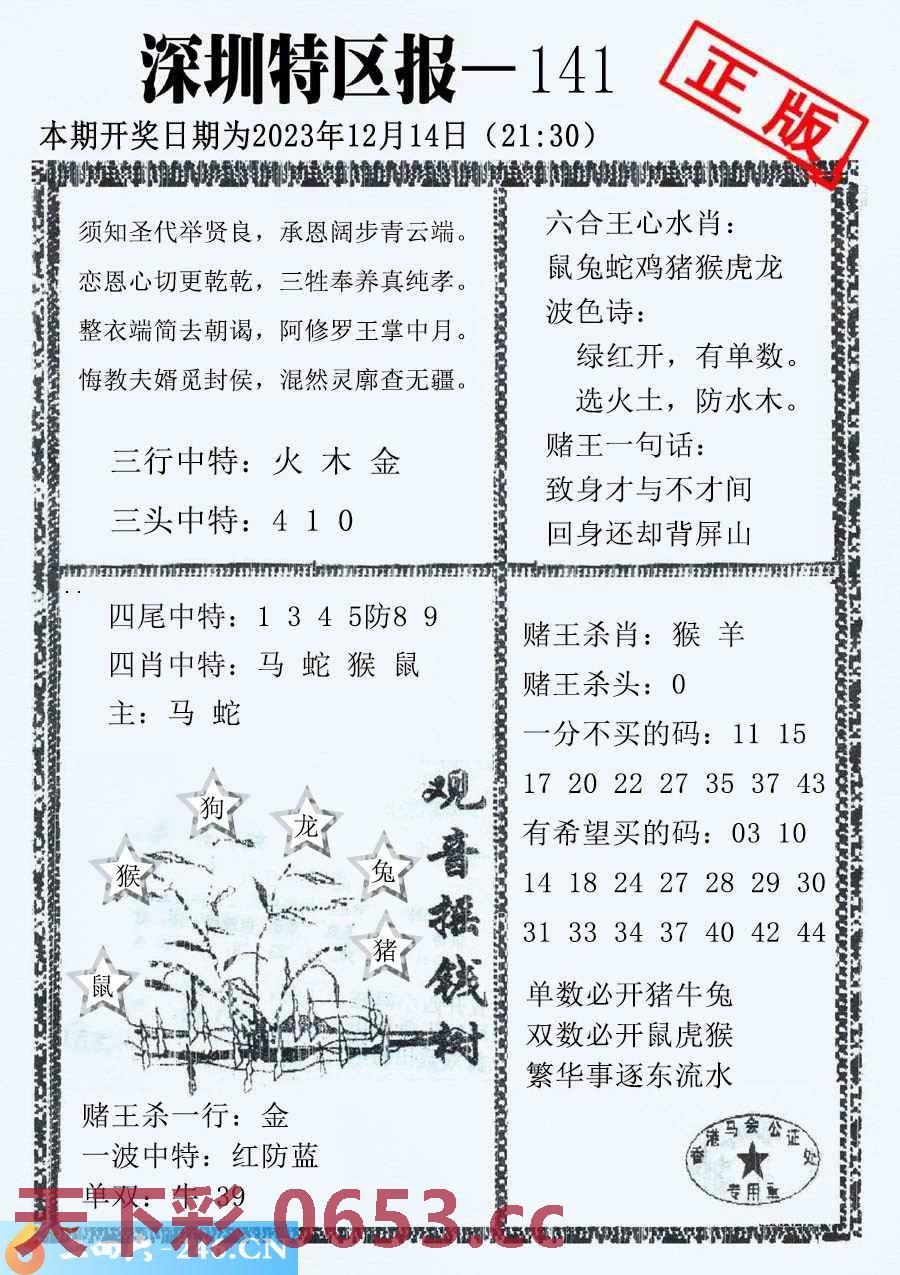 深圳特区报—141
正版
本期开奖日期为2023年12月14日（21:30）
须知圣代举贤良，承恩阔步青云端。
恋恩心切更乾乾，三牲奉养真纯孝。
整衣端简去朝谒，阿修罗王掌中月。
悔教夫婿觅封侯，混然灵廓查无疆。
三行中特：火 木 金
三头中特：4 1 0
六合王心水肖：
鼠兔蛇鸡猪猴虎龙
波色诗：
绿红开，有单数。
选火土，防水木。
赌王一句话：
致身才与不才间
回身还却背屏山
四尾中特：1 3 4 5防8 9
四肖中特：马 蛇 猴 鼠
主：马 蛇
狗
龙
猴
兔
猪
鼠
观音摇钱树
赌王杀一行：金
一波中特：红防蓝
单双：牛 39
赌王杀肖：猴 羊
赌王杀头：0
一分不买的码：11 15
17 20 22 27 35 37 43
有希望买的码：03 10
14 18 24 27 28 29 30
31 33 34 37 40 42 44
单数必开猪牛兔
双数必开鼠虎猴
繁华事逐东流水
香港马会公证处
专用章
天下彩 0653.cc
-246.CN